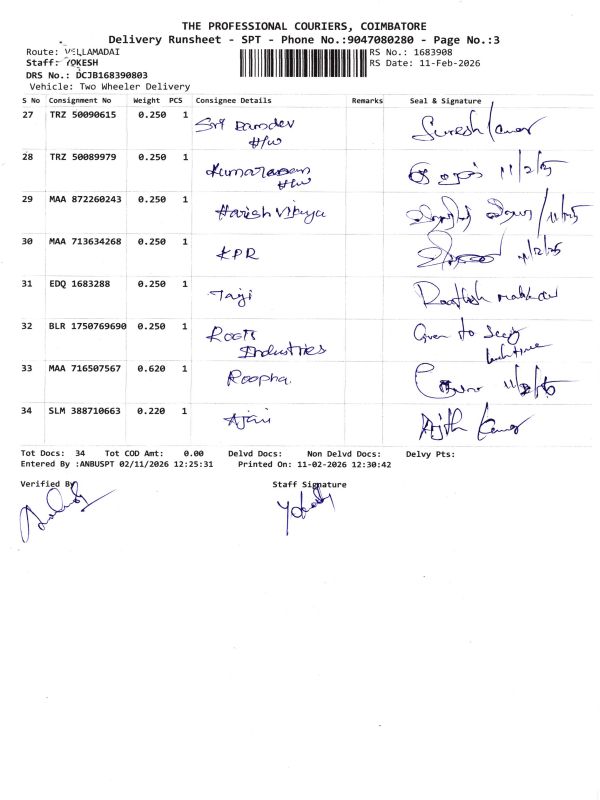 THE PROFESSIONAL COURIERS, COIMBATORE
Delivery Runsheet - SPT - Phone No.:9047080280 - Page No.:3
Route: VELLAMADAI
RS No.: 1683908
Staff: YOKESH
RS Date: 11-Feb-2026
DRS No.: DCJB168390803
Vehicle: Two Wheeler Delivery
S No Consignment No Weight PCS Consignee Details Remarks Seal & Signature
27 TRZ 50090615 0.250 1 Sri Ramdev H/W Suresh Kumar
28 TRZ 50089979 0.250 1 Kumaran H/W 11/2/25
29 MAA 872260243 0.250 1 Harish Vijaya
30 MAA 713634268 0.250 1 KPR 11/2/25
31 EDQ 1683288 0.250 1 Taiji
32 BLR 1750769690 0.250 1 Roots Industries Given to
33 MAA 716507567 0.620 1 Roopha.
34 SLM 388710663 0.220 1 Ajith Kumar
Tot Docs: 34 Tot COD Amt: 0.00 Delvd Docs: Non Delvd Docs: Delvy Pts:
Entered By :ANBUSPT 02/11/2026 12:25:31 Printed On: 11-02-2026 12:30:42
Verified By Staff Signature
Yokesh